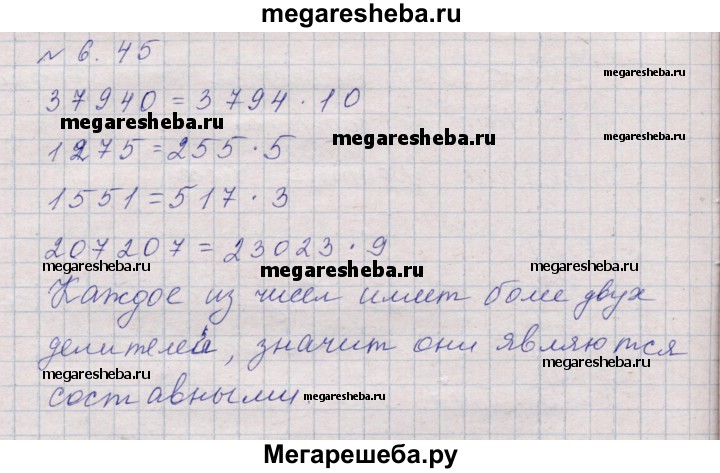 megaresheba.ru
№ 6.45
megaresheba.ru
37940 = 3794 · 10
megaresheba.ru
1275 = 255 · 5
megaresheba.ru
megaresheba.ru
1551 = 517 · 3
207207 = 23023 · 9
megaresheba.ru
megaresheba.ru
megaresheba.ru
Каждое из чисел имеет более двух
делителей, значит они являются
megaresheba.ru
megaresheba.ru
составными.
megaresheba.ru
Мегарешеба.ру